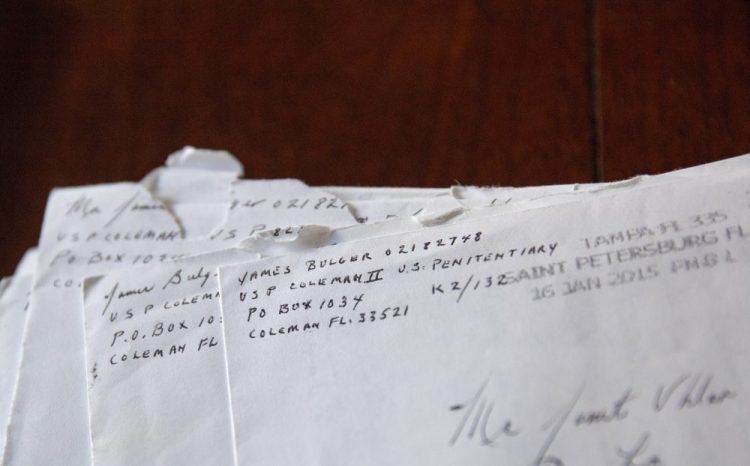 USP COLEMAN
PO BOX
James Bulg
USP COLEMA
P.O. BOX 10
COLEMAN FL
JAMES BULGER 02182748
USP COLEMAN II U.S. PENITENTIARY
PO BOX 1034 K2/132
COLEMAN FL. 33521
TAMPA FL 335
SAINT PETERSBURG FL
16 JAN 2015 PM
Ms Janet Uhlar